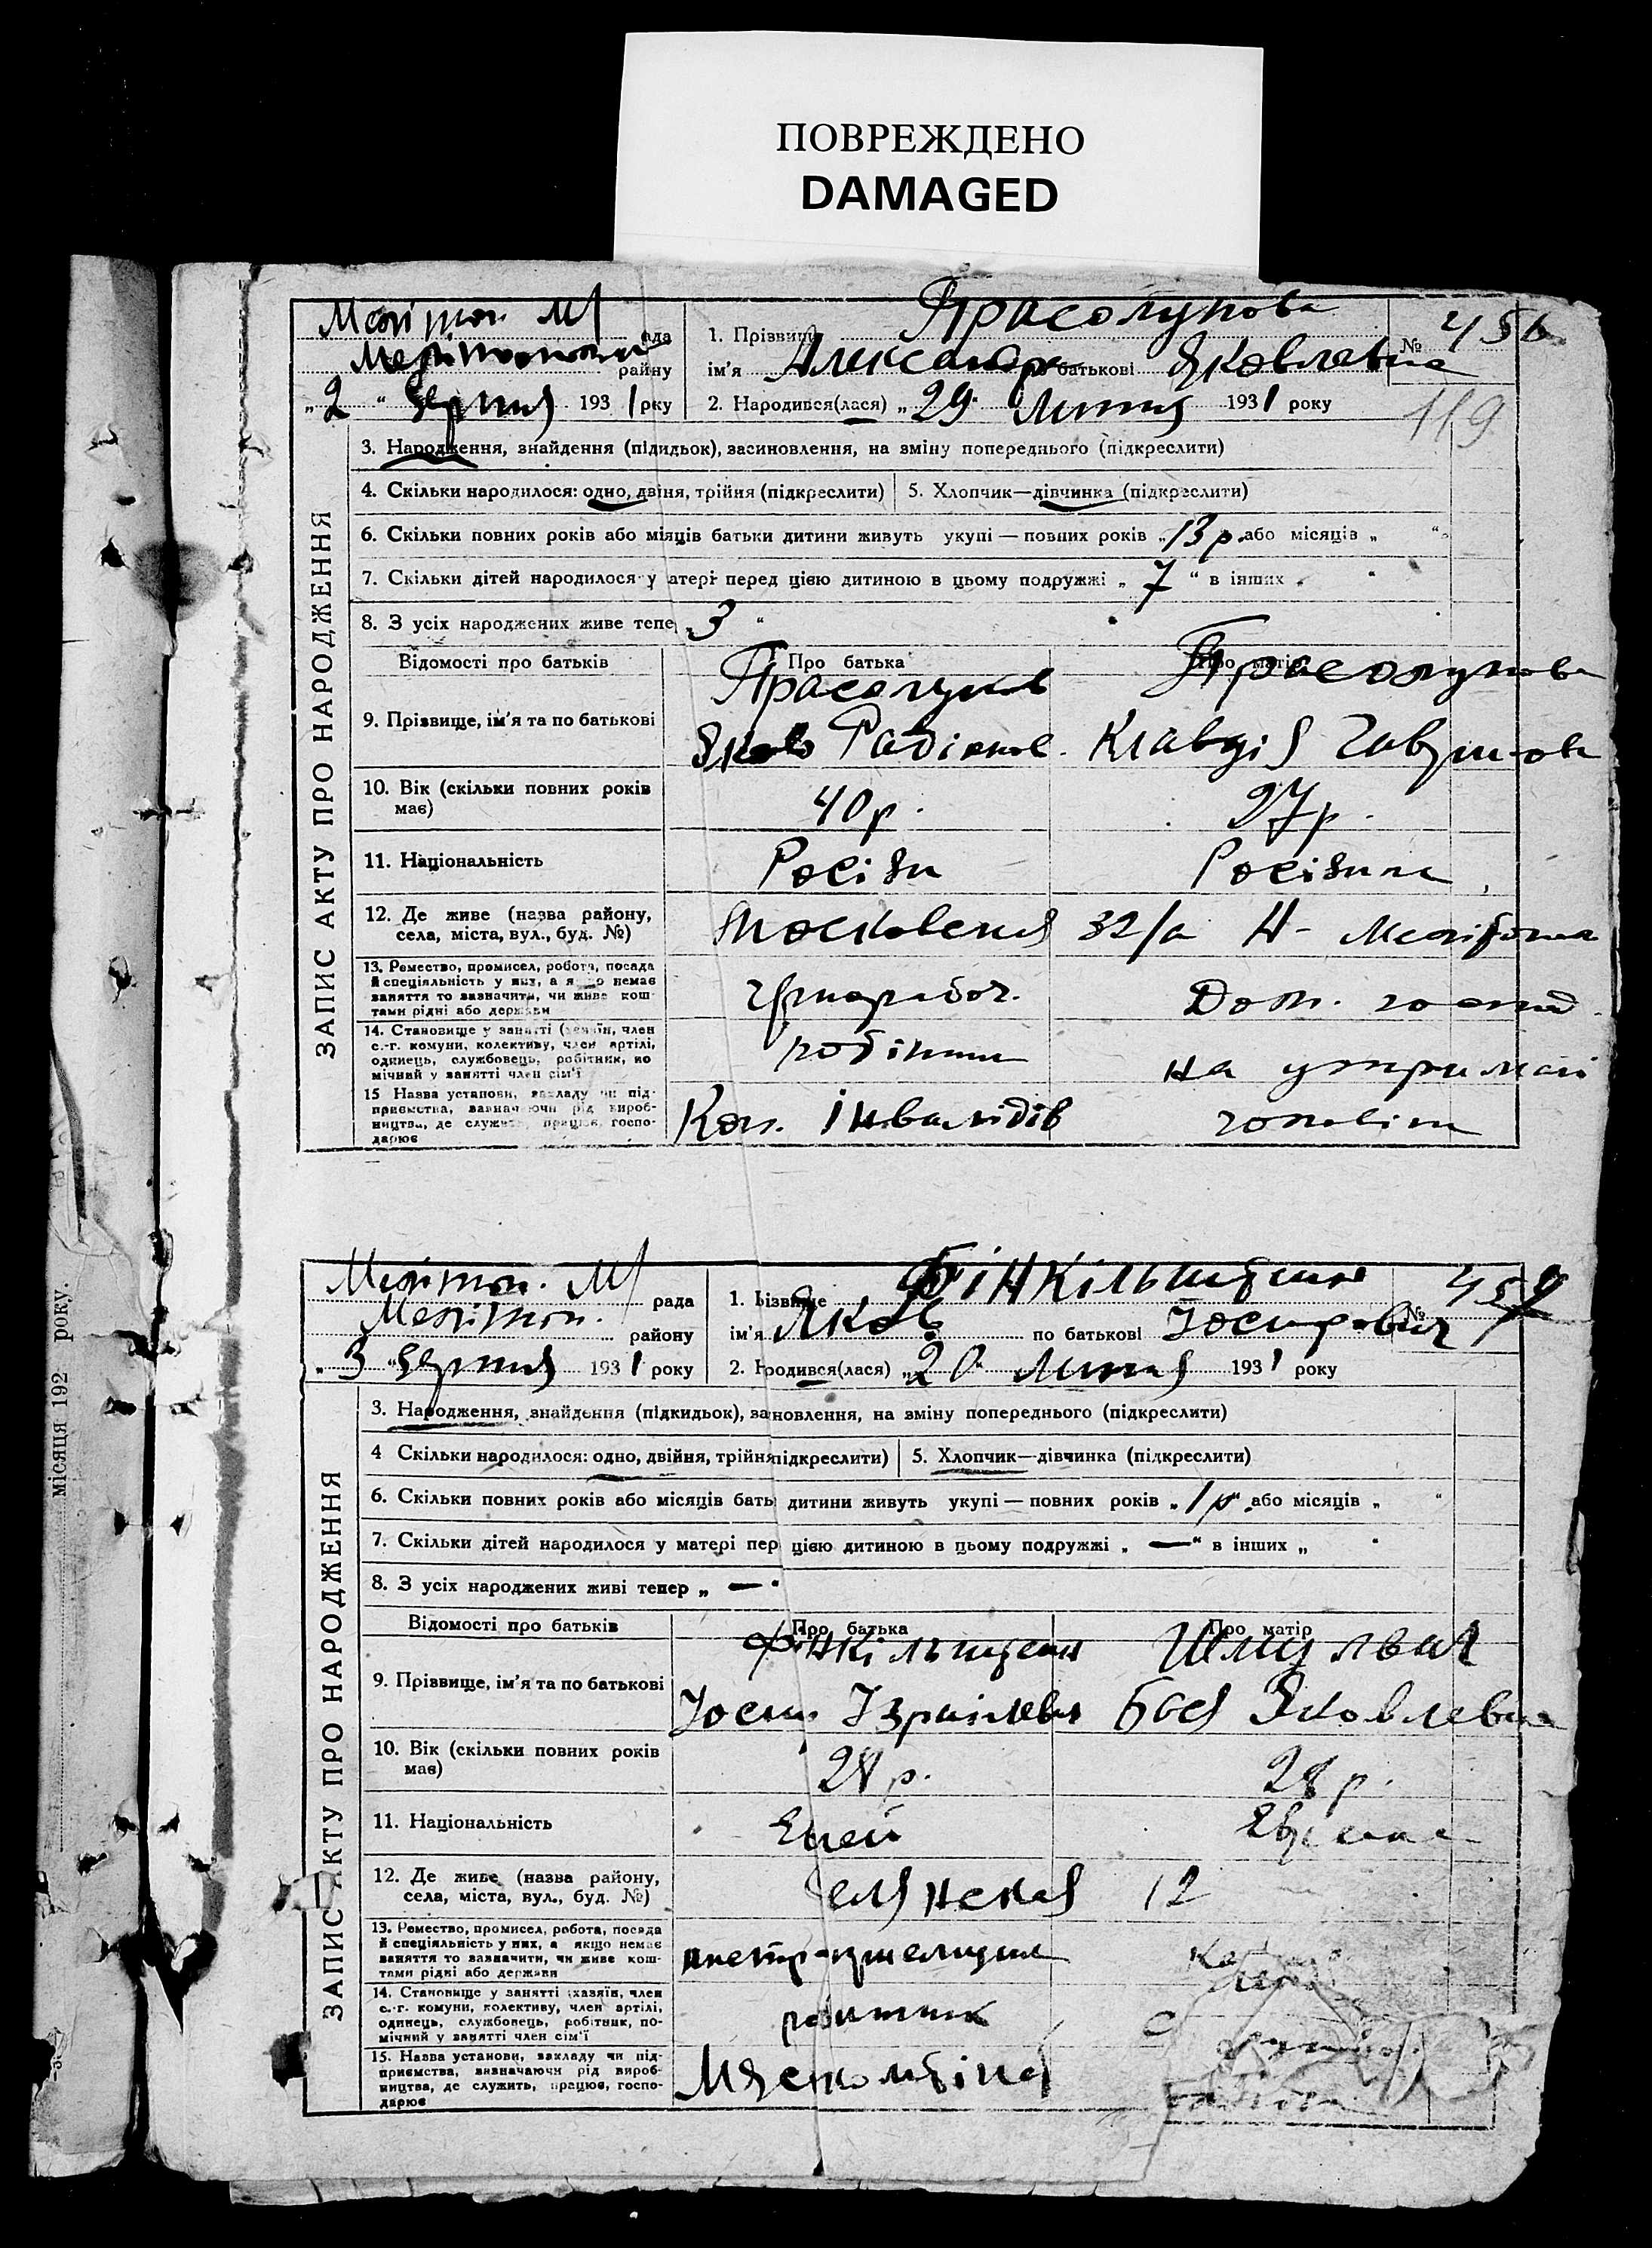 ПОВРЕЖДЕНО
DAMAGED
місяця 192 року.
Мелітоп. М/ рада
району
"2" Серпня 1931 рку
1. Прізвище Прасолунова
№ 456
ім'я Александра батькові Яковлевна
2. Народився(лася) "29" Липня 1931 року
119
ЗАПИС АКТУ ПРО НАРОДЖЕННЯ
3. Народження, знайдення (підидьок), засиновлення, на зміну попереднього (підкреслити)
4. Скільки народилося: одно, двіня, трійня (підкреслити)
5. Хлопчик—дівчинка (підкреслити)
6. Скільки повних років або міяців батьки дитини живуть укупі — повних років „13 р. або місяців „ “
7. Скільки дітей народилося у атері перед цією дитиною в цьому подружжі „ 7 “ в інших
8. З усіх народжених живе тепе „ 3 “
Відомості про батьків
Про батька
Про матір
9. Прізвище, ім'я та по батькові
Прасолунов
Прасолунова
Яков Радіонов.
Клавдія
10. Вік (скільки повних років має)
40 р.
27 р.
11. Національність
Росіян
Росіянка
12. Де живе (назва району, села, міста, вул., буд. №)
Московська 32/а Н- Мелітоп
13. Ремество, промисел, робота, посада й спеціяльність у них, а я що немає заняття то зазначити, чи живе коштами рідні або держави
чорнороboч.
Дом. господ.
14. Становище у занятті (хазяїн, член с.-г. комуни, колективу, член артілі, одинець, службовець, робітник, по мічний у занятті член сім'ї
робітник
на утриман
15 Назва установи, закладу чи підприємства, зазначаючи рід виробництва, де служить, працює, господарює
Кон. Інвалідів
чоловіка
Мелітоп. М/ рада
Мелітоп. району
"3" Серпня 1931 року
1. Ізвище Фінкільштейн
№ 457
ім'я Яков по батькові Іосипович
2. Родився(лася) „20“ Липня 1931 року
ЗАПИС АКТУ ПРО НАРОДЖЕННЯ
3. Народження, знайдення (підкидьок), зановлення, на зміну попереднього (підкреслити)
4 Скільки народилося: одно, двійня, трійня підкреслити)
5. Хлопчик—дівчинка (підкреслити)
6. Скільки повних років або місяців бать дитини живуть укупі — повних років „1 р“. або місяців „ “
7. Скільки дітей народилося у матері пер цією дитиною в цьому подружжі „ — “ в інших „ “
8. З усіх народжених живі тепер „ — “
Відомості про батьків
Про батька
Про матір
9. Прізвище, ім'я та по батькові
Фінкільштейн
Шмулевич
Іосип Ізраілевич
Бася Яковлевна
10. Вік (скільки повних років має)
28 р.
28 р.
11. Національність
Еврей
Еврейка
12. Де живе (назва району, села, міста, вул., буд. №)
12
13. Ремество, промисел, робота, посада й спеціяльність у них, а якщо немає заняття то зазначити, чи живе коштами рідні або держави
14. Становище у занятті (хазяїн, член с.-г. комуни, колективу, член артілі, одинець, службовець, робітник, помічний у занятті член сім'ї
робітник
15. Назва установи, закладу чи підприємства, зазначаючи рід виробництва, де служить, працює, господарює